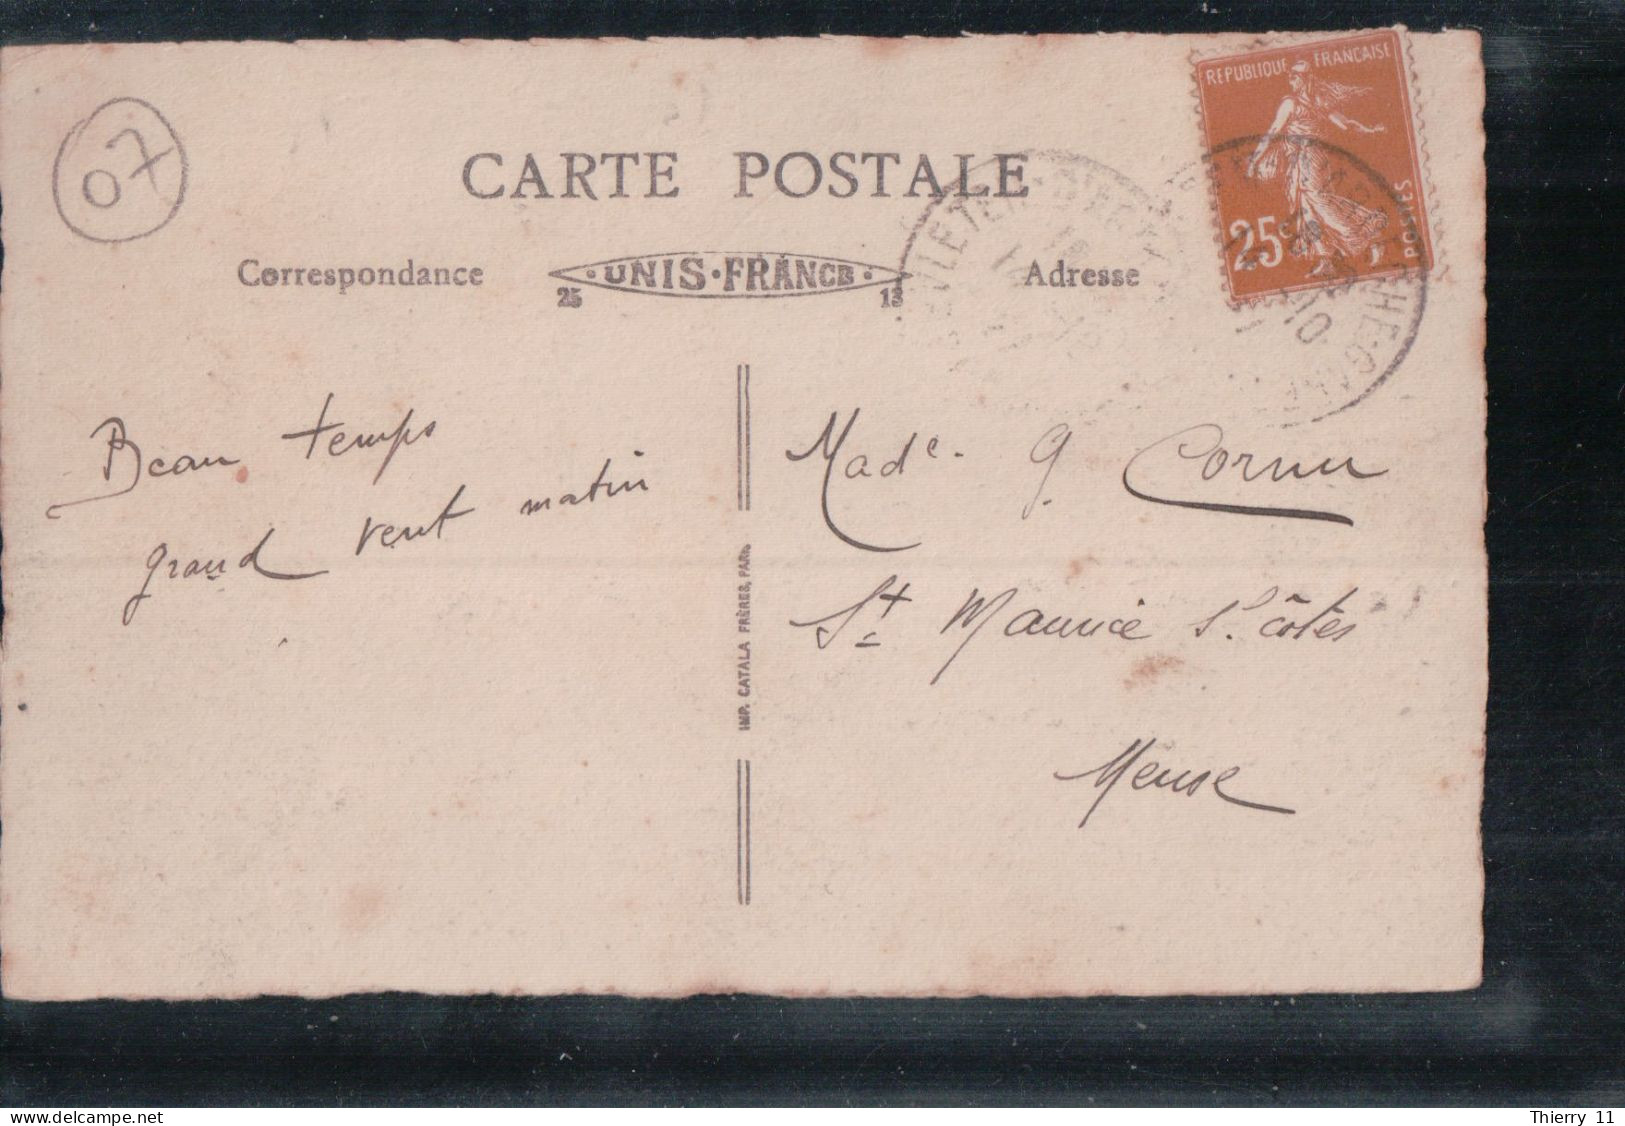 07
CARTE POSTALE
RÉPUBLIQUE FRANÇAISE
25c
POSTES
Correspondance
· UNIS · FRANCE ·
25 13
Adresse
Beau temps
grand vent matin
IMP. CATALA FRÈRES, PARIS
Made. G. Cornu
St Maurice s. côtes
Meuse
www.delcampe.net
Thierry 11